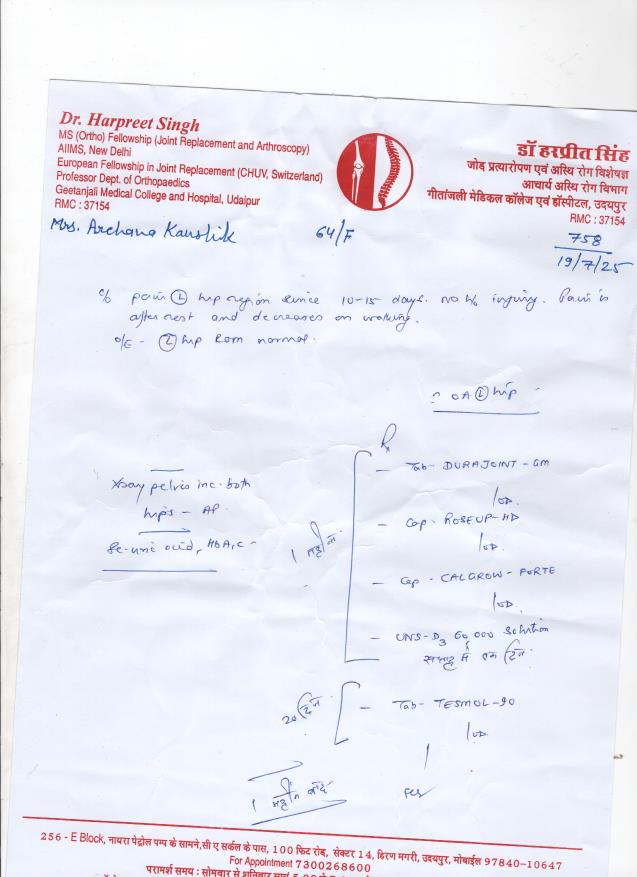 Dr. Harpreet Singh
MS (Ortho) Fellowship (Joint Replacement and Arthroscopy)
AIIMS, New Delhi
European Fellowship in Joint Replacement (CHUV, Switzerland)
Professor Dept. of Orthopaedics
Geetanjali Medical College and Hospital, Udaipur
RMC : 37154
डॉ हरप्रीत सिंह
जोड़ प्रत्यारोपण एवं अस्थि रोग विशेषज्ञ
आचार्य अस्थि रोग विभाग
गीतांजली मेडिकल कॉलेज एवं हॉस्पीटल, उदयपुर
RMC : 37154
Mrs. Archana Kaushik 64/F
758
19/7/25
c/o pain (L) hip region since 10-15 days. no h/o injury. Pain is
after rest and decreases on walking.
o/E - (L) hip ROM normal.
? OA (L) hip
Xray pelvis inc. both
hips - AP
Se-uric acid, HbA1c -
Rx
1 महीना
- Tab- DURAJOINT-GM
1 OD.
- Cap- ROSEUP-HD
1 OD.
- Cap- CALGROW-FORTE
1 OD.
- UNS-D3 60,000 solution
सप्ताह में एक दिन
20 दिन
- Tab- TESMOL-90
1 OD
1 महीने बाद
256 - E Block, नायरा पेट्रोल पम्प के सामने,सी ए सर्कल के पास, 100 फिट रोड, सेक्टर 14, हिरण मगरी, उदयपुर, मोबाईल 97840-10647
For Appointment 7300268600
परामर्श समय : सोमवार से शनिवार